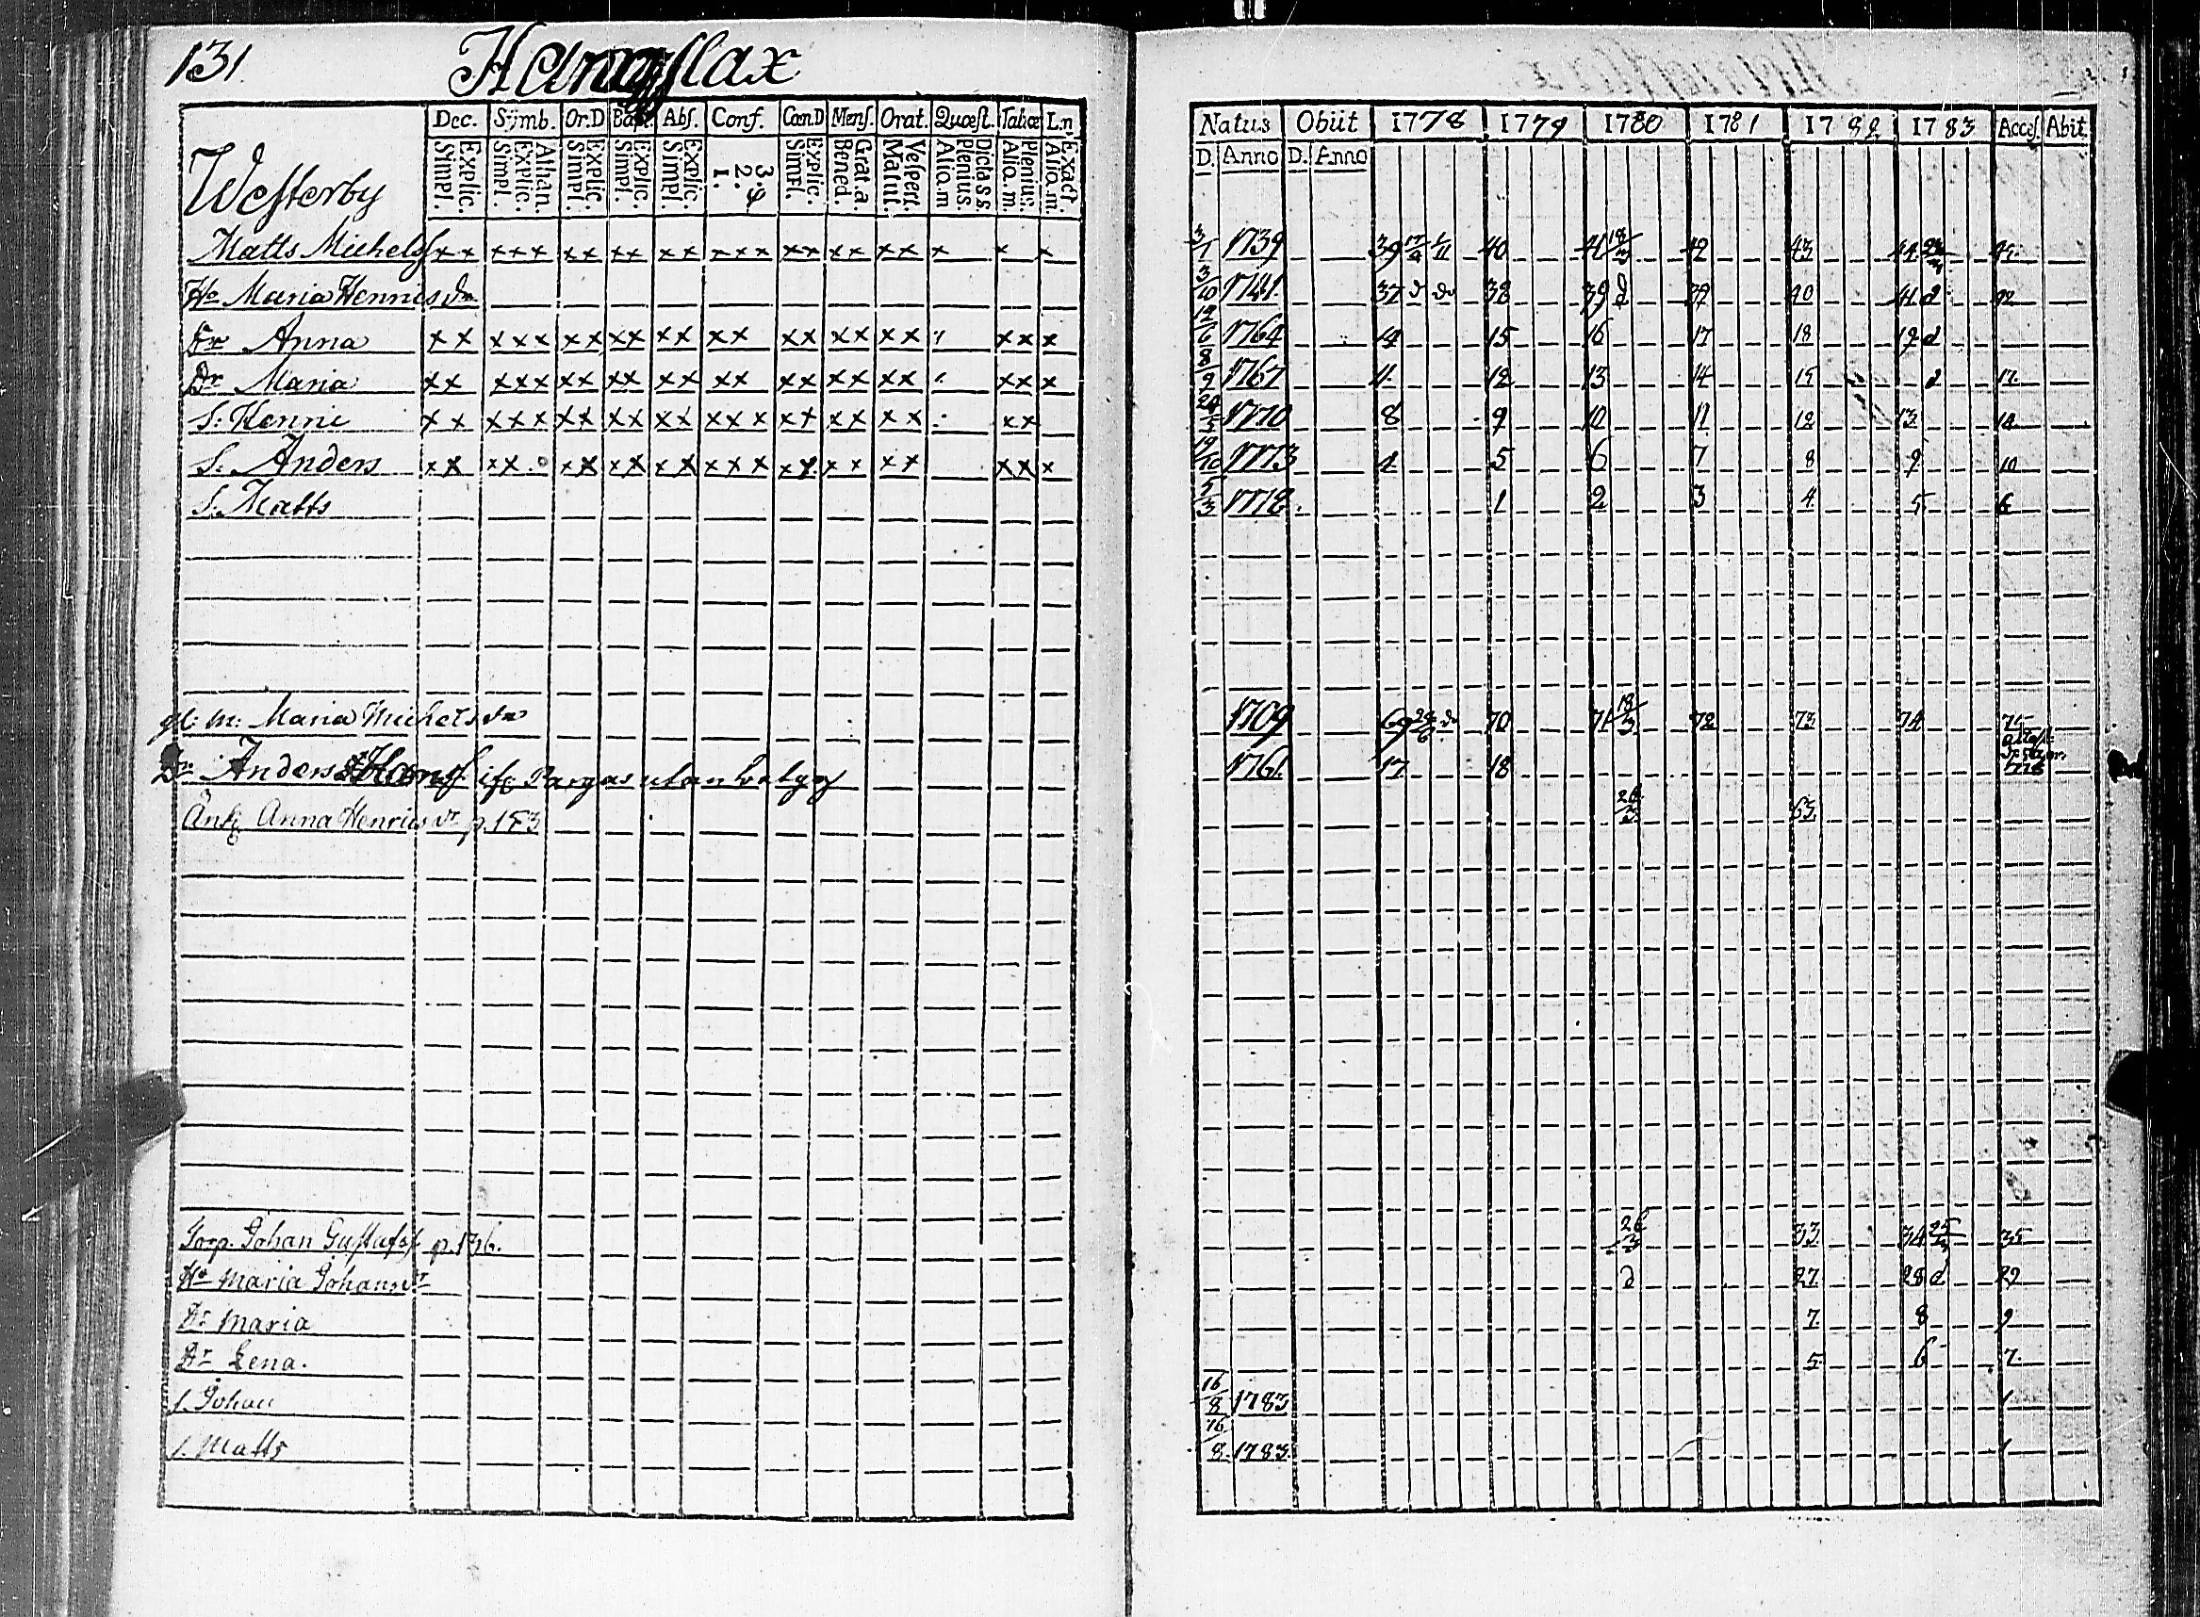 131
Westerby
Dec. Symb. Or.D Bapt. Abs. Conf. Cœn.D Mens. Orat. Quæst. Tab.œ L.n.
Explic. Simpl. Athan. Explic. Simpl. Explic. Simpl. Explic. Simpl. Explic. Simpl. 3. 2. 1. Explic. Simpl. Grat.a. Bened. Vespert. Matut. Dicta s.s. Plenius. Aliq.m Plenius. Aliq.m. Exact. Aliq.m.
Natus Obiit 1778 1779 1780 1781 1782 1783 Acces. Abit.
D. Anno D. Anno
Matts Michelss x x x x x x x x x x x x x x x x x x x x x x 3/1 1739 39 40 41 18/3 42 43 44
Ho Maria Henricsdr 3/10 1741. 37 d do 38 39 d 39 40 41 d 42
Anna x x x x x x x x x x x x x x x x x x x x x x x 12/6 1764 14 15 16 17 18 19 d
Dr Maria x x x x x x x x x x x x x x x x x x x x x x x 8/9 1767 11. 12 13 14 15 d 17.
S. Henric x x x x x x x x x x x x x x x x x x x x x x 1770 8 9 10 11 12 13
S. Anders x x x x o x x x x x x x x x x x x x x x x x x x 19/10 1773 4 5 6 7 8 9 10
S. Matts 5/3 1778. 1 2 3 4 5 6
gl: m: Maria Michelsdr 1709 69 70 71 18/3 72 73 74 75
Dr Anders ifr Pargas utan betyg 1761. 17 18
Änk Anna Henricsdr p. 153 26/3 63
Torp. Johan Gustafss p. 136. 26/3 33 34 25/3 35
Ho Maria Johansdr d 27 28 d 29
Dr Maria 7. 8 9
Dr Lena. 5 6 7.
S. Johan 16/8 1783 1.
S. Matts 16/8 1783. 1